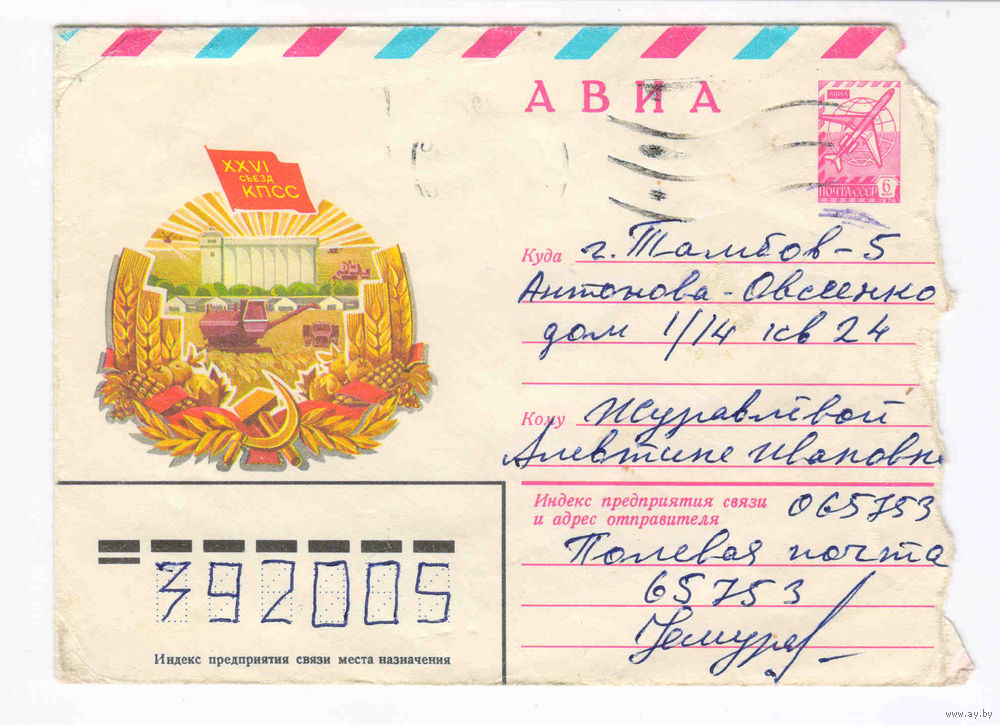 АВИА
АВИА
ПОЧТА СССР
6
КОП
1976
XXVI
СЪЕЗД
КПСС
Куда г. Тамбов-5
Антонова-Овсеенко
дом 1/14 кв 24
Кому Журавлёвой
Алевтине Ивановне
Индекс предприятия связи
и адрес отправителя 065753
Полевая почта
65753
392005
Индекс предприятия связи места назначения
www.ay.by